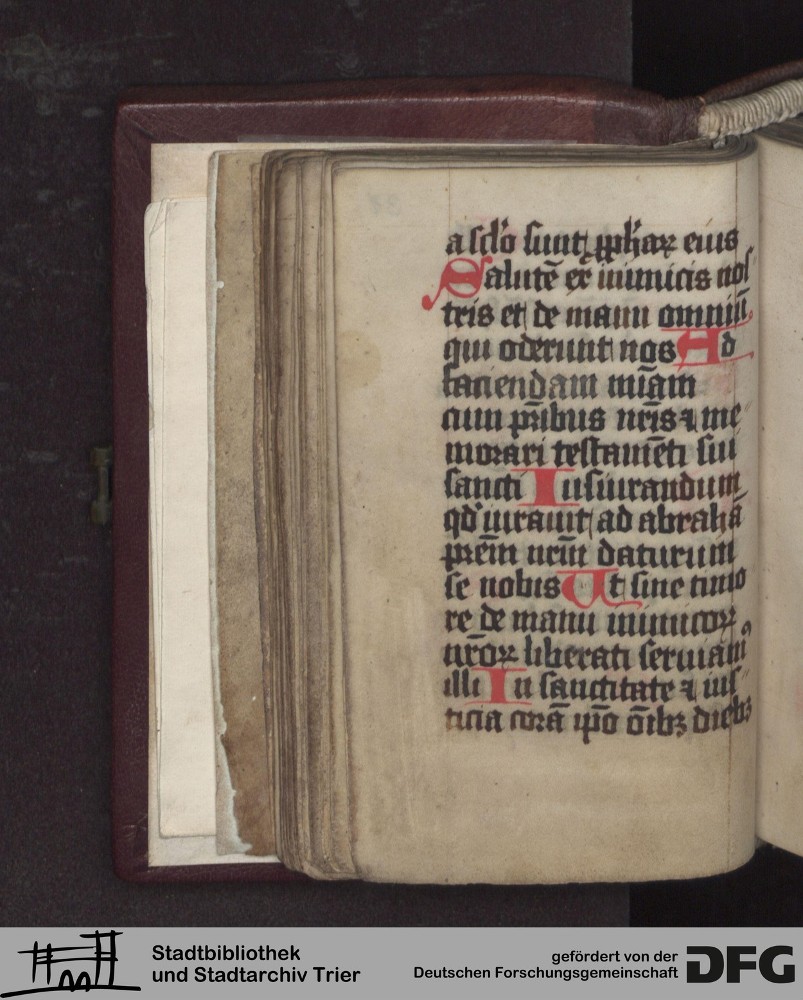 a sclo sunt ꝓphaꝝ eius
Salutē ex inimicis nos
tris et de manu omniū
qui oderunt nos Ad
faciendam mīam
cum pr̄ibus nr̄is ⁊ me
morari testamēti sui
sancti Iusiurandum
qd' iurauit ad abrahā
prēm nrūm daturum
se nobis Ut sine timo
re de manu inimicoꝝ
nr̄oꝝ liberati seruiamꝰ
illi In sanctitate ⁊ ius
ticia corā ipō ōibꝫ diebꝫ
Stadtbibliothek
und Stadtarchiv Trier
gefördert von der
Deutschen Forschungsgemeinschaft
DFG